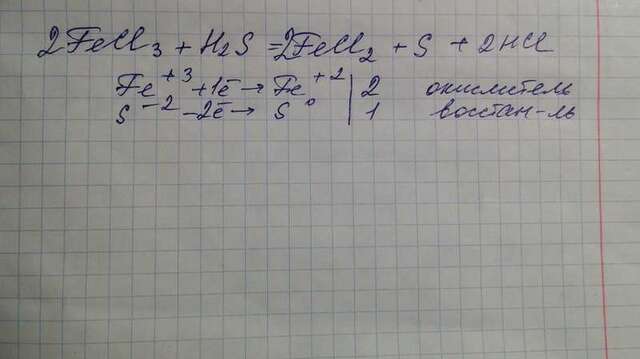 2FeCl₃ + H₂S = 2FeCl₂ + S + 2HCl
Fe⁺³ +1ē → Fe⁺² | 2 окислитель
S⁻² -2ē → S⁰ | 1 восстан-ль